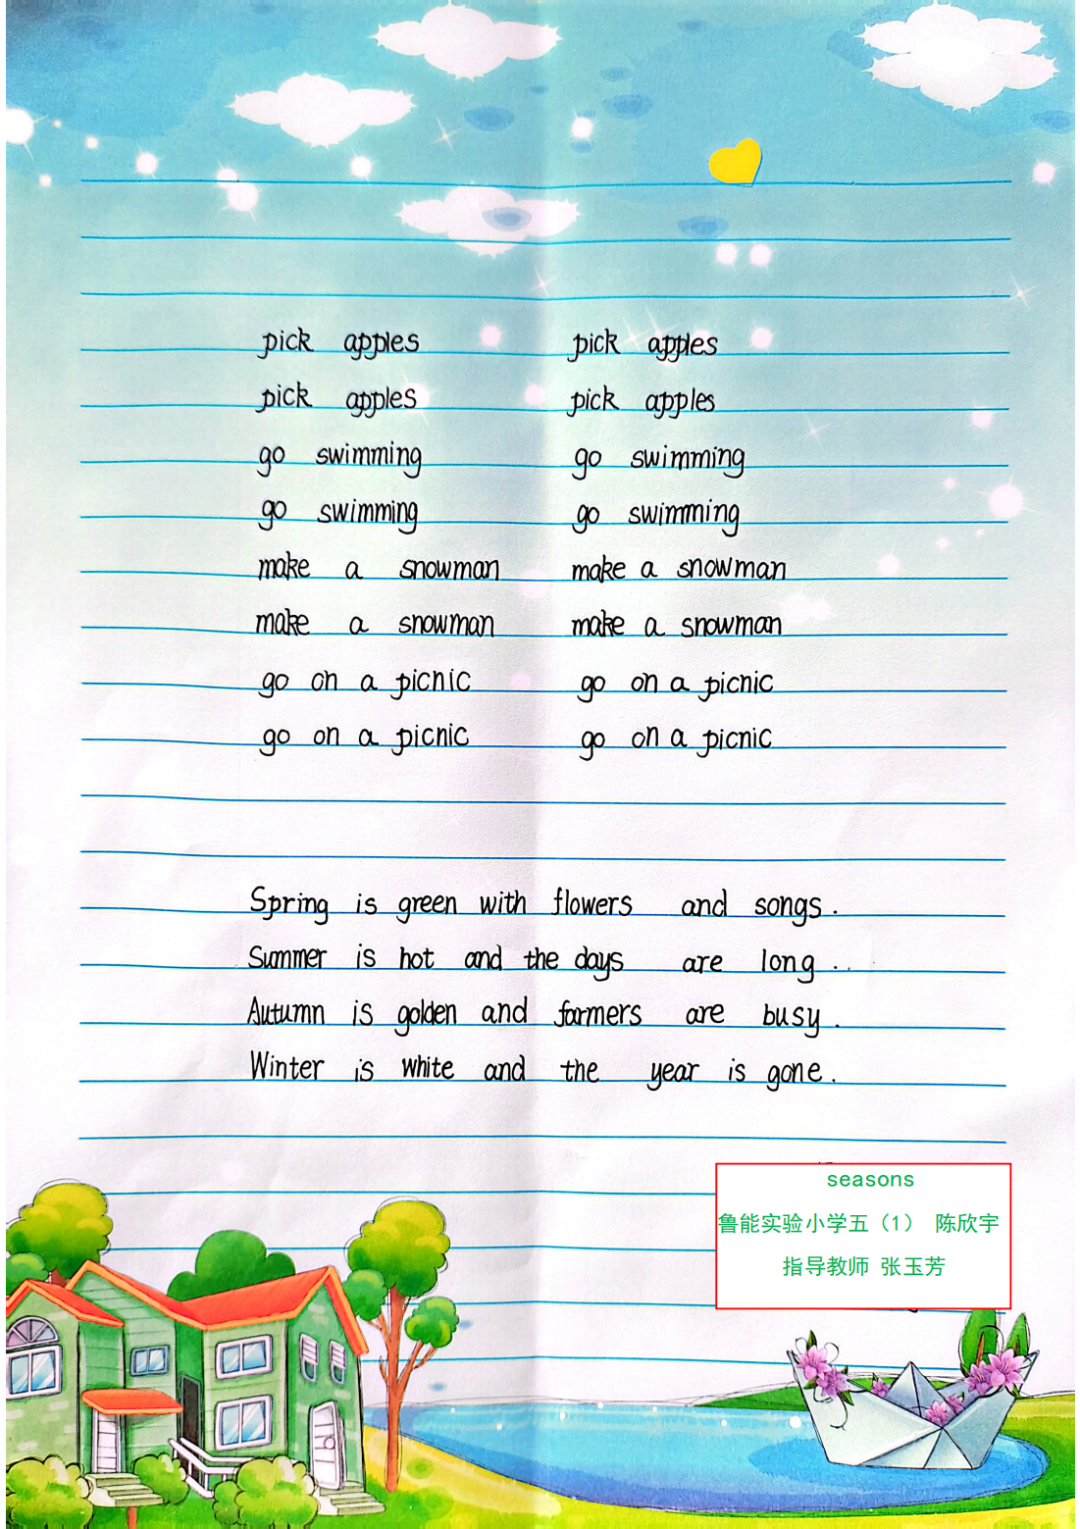 pick apples pick apples
pick apples pick apples
go swimming go swimming
go swimming go swimming
make a snowman make a snowman
make a snowman make a snowman
go on a picnic go on a picnic
go on a picnic go on a picnic
Spring is green with flowers and songs.
Summer is hot and the days are long..
Autumn is golden and farmers are busy.
Winter is white and the year is gone.
seasons
鲁能实验小学五（1） 陈欣宇
指导教师 张玉芳